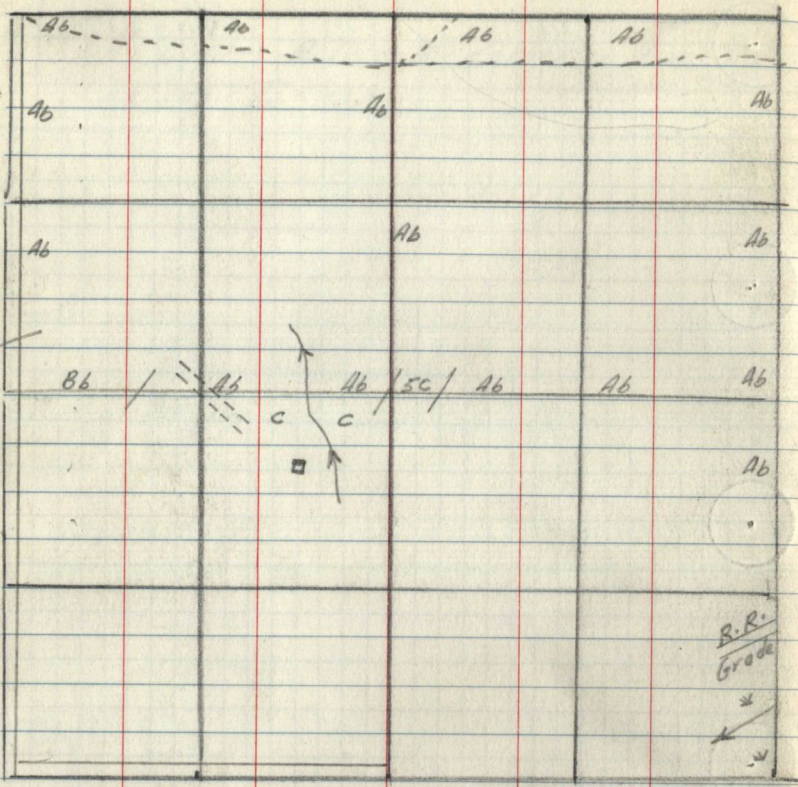 Ab Ab Ab Ab
Ab Ab Ab
Ab Ab Ab
Bb / Ab Ab / 5C / Ab Ab Ab
C C
Ab
R.R.
Grade